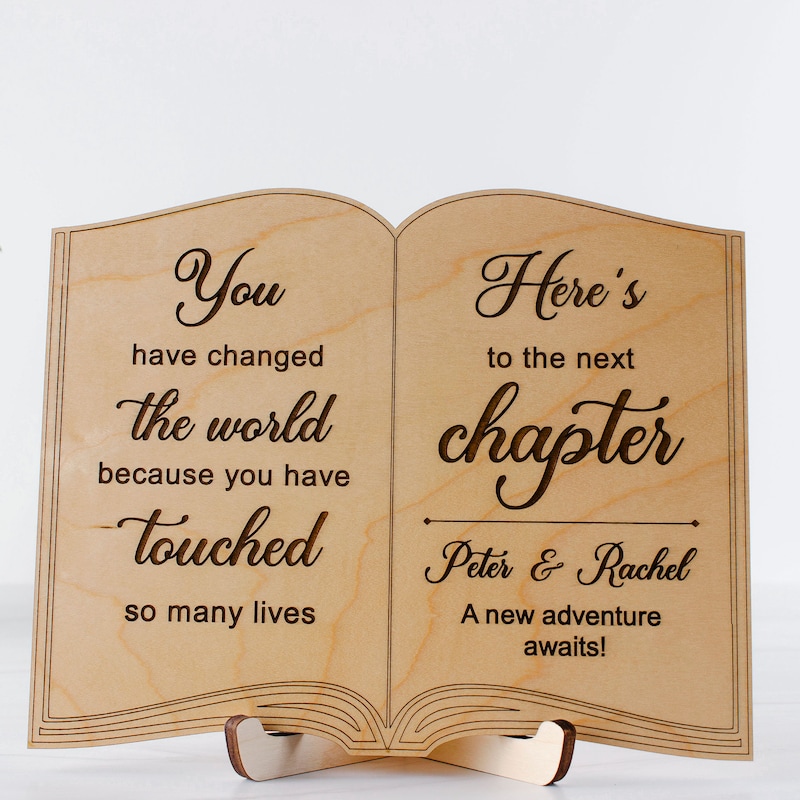 You
have changed
the world
because you have
touched
so many lives
Here's
to the next
chapter
Peter & Rachel
A new adventure
awaits!